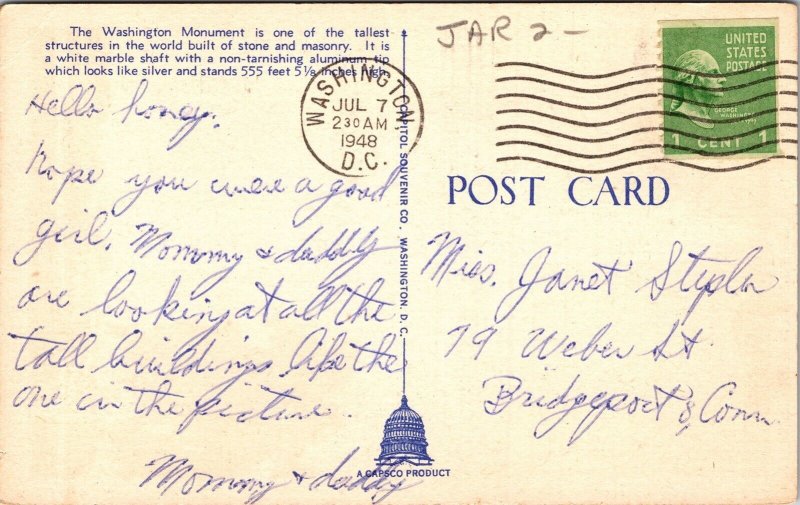 The Washington Monument is one of the tallest
structures in the world built of stone and masonry. It is
a white marble shaft with a non-tarnishing aluminum tip
which looks like silver and stands 555 feet 5⅛ inches high.
JAR 2 -
WASHINGTON
JUL 7
2 30 AM
1948
D.C.
UNITED
STATES
POSTAGE
GEORGE WASHINGTON
1 CENT 1
Hello honey,
Hope you were a good
girl. Mommy & daddy
are looking at all the
tall buildings like the
one in the picture.
Mommy & daddy
CAPITOL SOUVENIR CO., WASHINGTON, D. C.
POST CARD
Miss. Janet
79 Weber St.
Bridgeport 8, Conn
A CAPSCO PRODUCT